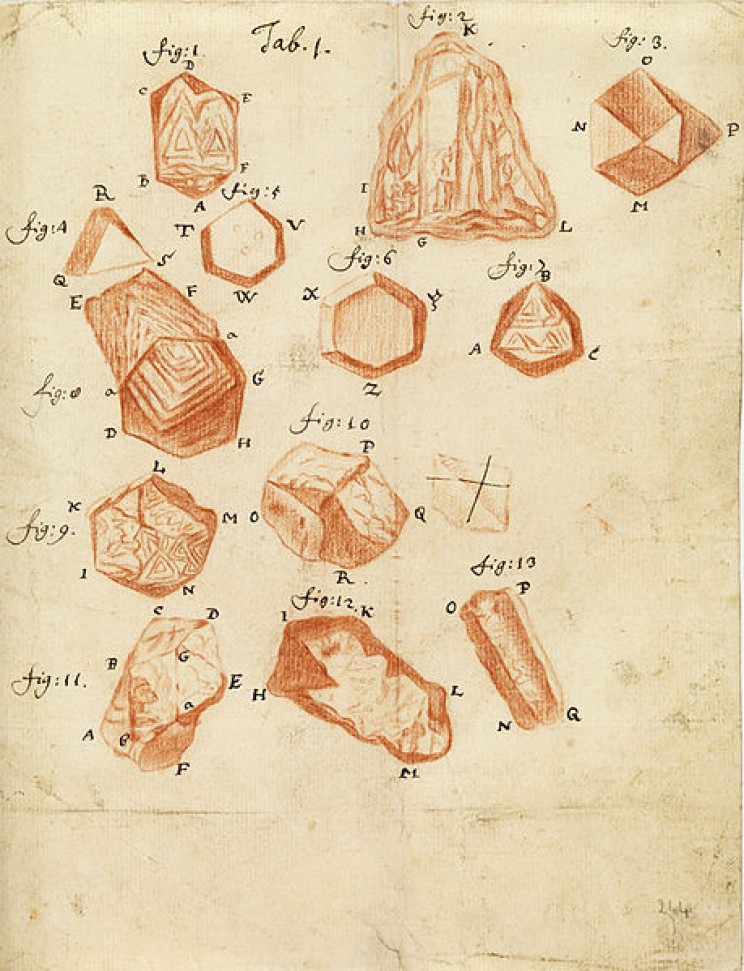 Tab. 1.
fig: 1.
D
C
E
B
F
A
fig: 2
K
I
H
G
L
fig: 3.
O
N
P
M
fig: 4
R
Q
S
fig: 5
T
V
W
fig: 6
X
Z
fig: 7
B
A
C
E
F
a
fig: 8
a
G
D
H
fig: 9.
L
K
M
I
N
fig: 10
P
O
Q
R.
fig: 11.
C
D
B
G
E
a
A
6
F
fig: 12.
I
K
H
L
M
fig: 13
O
P
N
Q
244